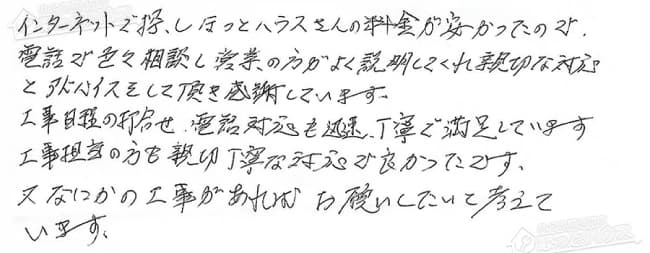 インターネットで探しほっとハウスさんの料金が安かったので、
電話で色々相談し営業の方がよく説明してくれ親切な対応
とアドバイスをして頂き感謝しています。
工事日程の打合せ、電話対応も迅速、丁寧で満足しています
工事担当の方も親切丁寧な対応で良かったです。
又なにかの工事があればお願いしたいと考えて
います。